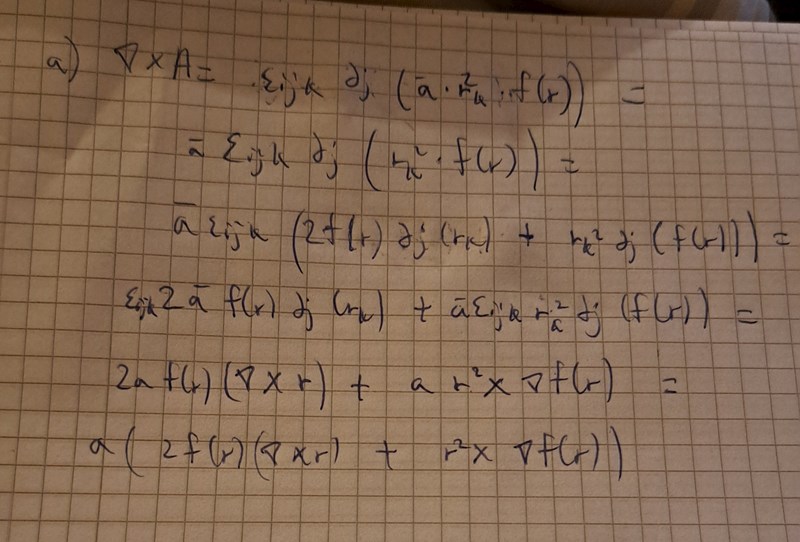 a) ∇×A = εijk ∂j (ā · rk² · f(r)) =
ā εijk ∂j (rk² · f(r)) =
ā εijk (2f(r) ∂j (rk) + rk² ∂j (f(r))) =
εijk 2 ā f(r) ∂j (rk) + ā εijk rk² ∂j (f(r)) =
2a f(r) (∇×r) + a r² × ∇f(r) =
a (2f(r)(∇×r) + r² × ∇f(r))